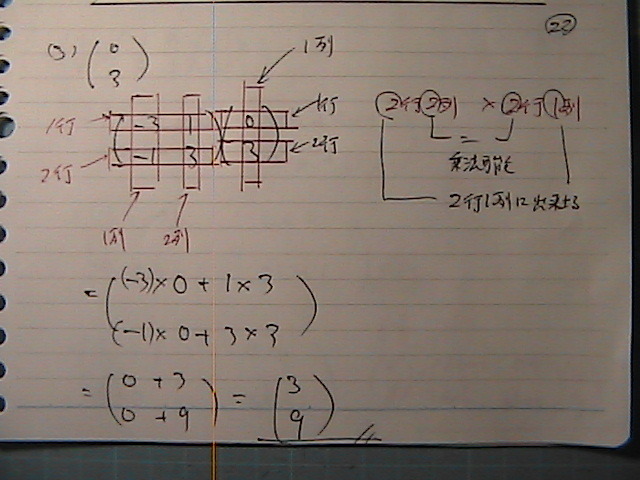 22
(3) ( 0
3 )
1列
1行 ( -3 1 ) ( 0 ) 1行
2行 ( -1 3 ) ( 3 ) 2行
1列 2列
2行2列 × 2行1列
=
乗法可能
2行1列に出来る
= ( (-3)×0 + 1×3
(-1)×0 + 3×3 )
= ( 0 + 3
0 + 9 ) = ( 3
9 )